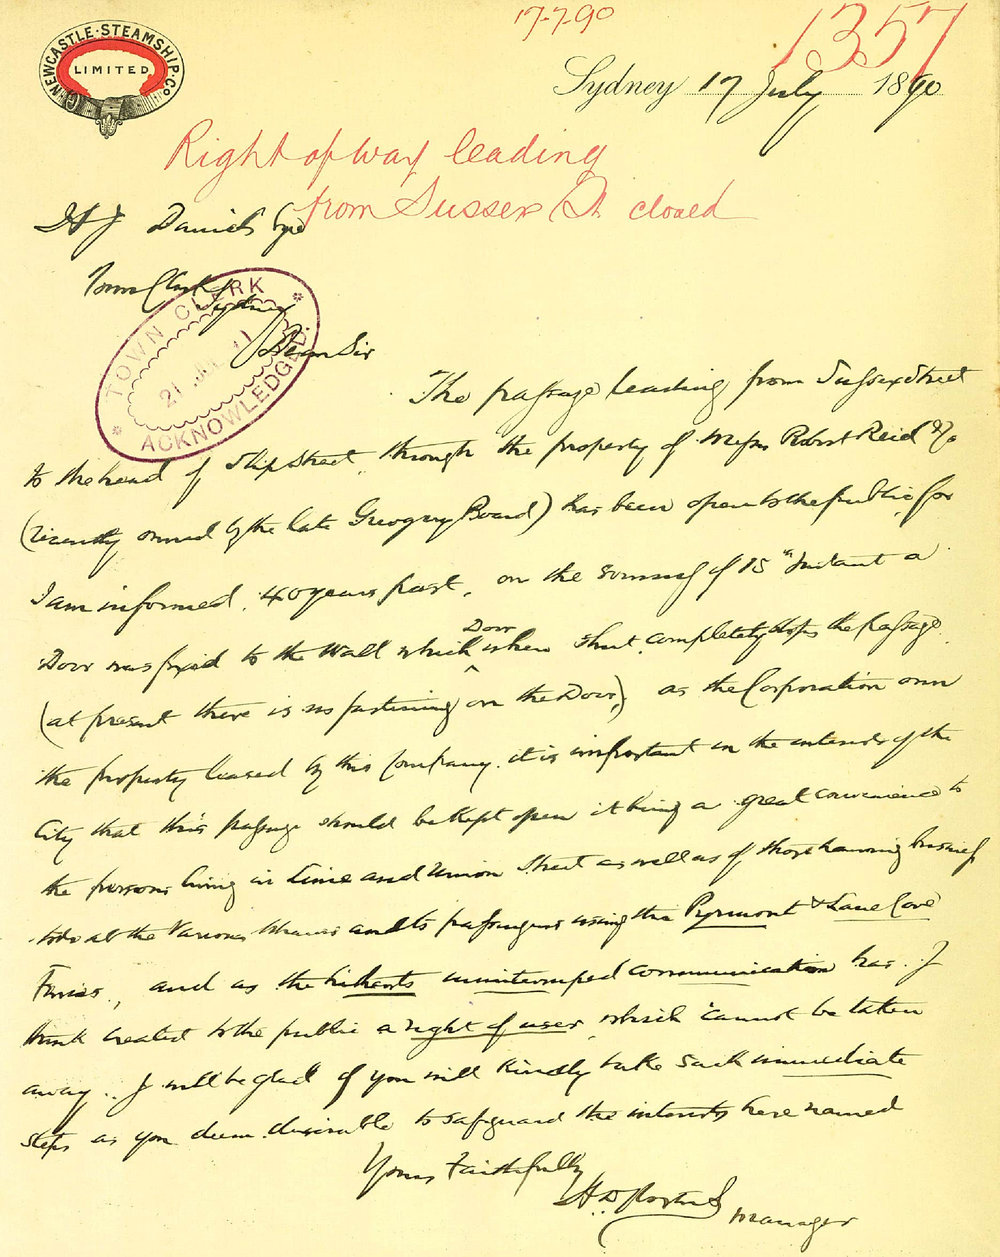 NEWCASTLE · STEAMSHIP · Co
LIMITED
17-7-90
1357
Sydney 17 July 1890
Right of way leading
from Sussex St. closed
H J Daniels Esqre
Town Clerk
Sydney
TOWN CLERK
21 JUL
ACKNOWLEDGED.
Dear Sir
The passage leading from Sussex Street
to the head of Slip Street, through the property of Messrs Robert Reid & Co
(recently owned by the late Gregory Board) has been open to the public, for
I am informed, 40 years past, on the evening of 15th Instant a
Door was fixed to the Wall which Door when shut, completely stops the passage
(at present there is no fastening on the Door,) as the Corporation own
the property leased by this Company, it is important in the interests of the
City that this passage should be kept open it being a great convenience to
the persons living in Lime and Union Street as well as of those having business
to do at the Various Wharves and to passengers using the Pyrmont & Lane Cove
Ferries, and as the hitherto uninterruped communication has, I
think created to the public a right of user, which cannot be taken
away.. I will be glad if you will kindly take such immediate
steps as you deem desirable to safeguard the interests here named
Yours Faithfully
H. D.
manager